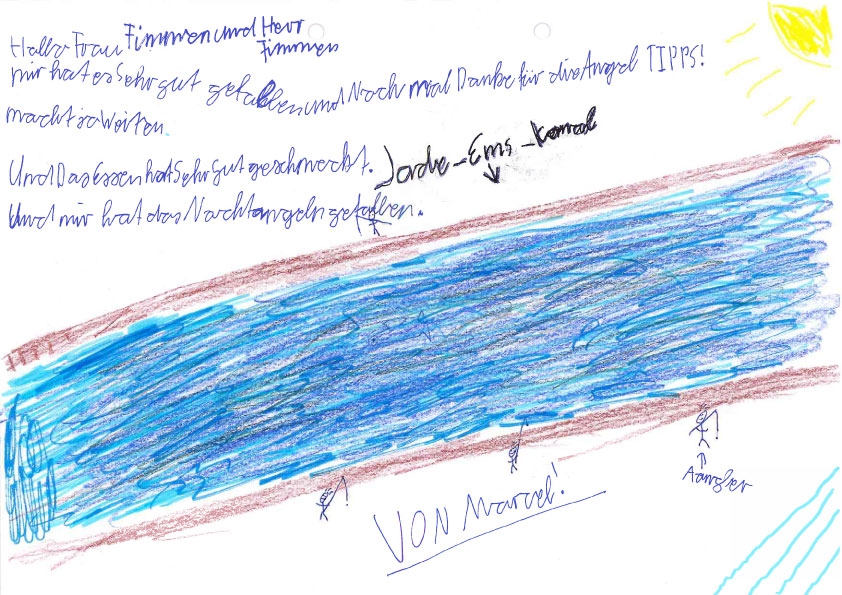 Hallo Frau Fimmen und Herr
Fimmen
mir hat es Sehr gut gefallen und Noch mal Danke für die Angel TIPPS!
macht so Weiter.
Und Das Essen hat Sehr gut geschmeckt.
Jade-Ems-Kanal
Und mir hat das Nachtangeln gefallen.
Aangler
VON Marcel!